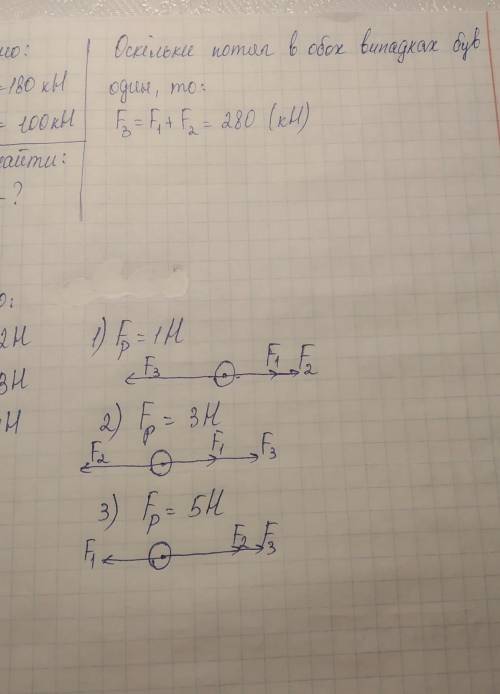 но:
=180 кН
= 100кН
найти:
- ?
Оскільки потяг в обох випадках був
один, то:
F₃ = F₁ + F₂ = 280 (кН)
о:
2Н
3Н
Н
1) Fр = 1Н
F₃ F₁ F₂
2) Fр = 3Н
F₂ F₁ F₃
3) Fр = 5Н
F₁ F₂ F₃